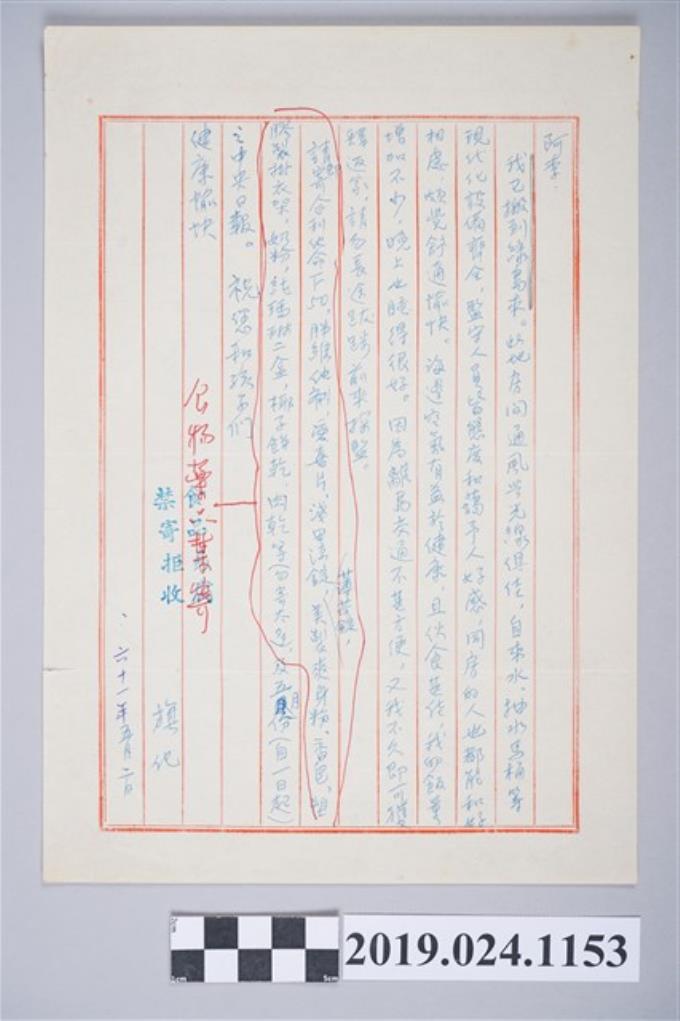 阿李：
我已搬到綠島來。此地房間通風與光線俱佳，自來水、抽水馬桶等
現代化設備齊全，監守人員皆態度和藹予人好感，同房的人也都能和好
相處，頗覺舒適愉快。海邊空氣有益於健康，且伙食甚佳，我的飯量
增加不少，晚上也睡得很好。因為離島交通不甚方便，又我不久即可獲
釋返家，請勿長途跋踄前來探監。
請即寄合利他命下50，肺維他劑，
錠，美製爽身粉，香皂，塑
膠製掛衣架，奶粉，二盒，椰子餅乾，肉乾等（勿寄太多），及五月份（自一日起）
之中央日報。祝您和孩子們
健康愉快
旗化
六十一年五月二日
食物藥品禁寄
食品
禁寄拒收
2019.024.1153
1cm
5cm